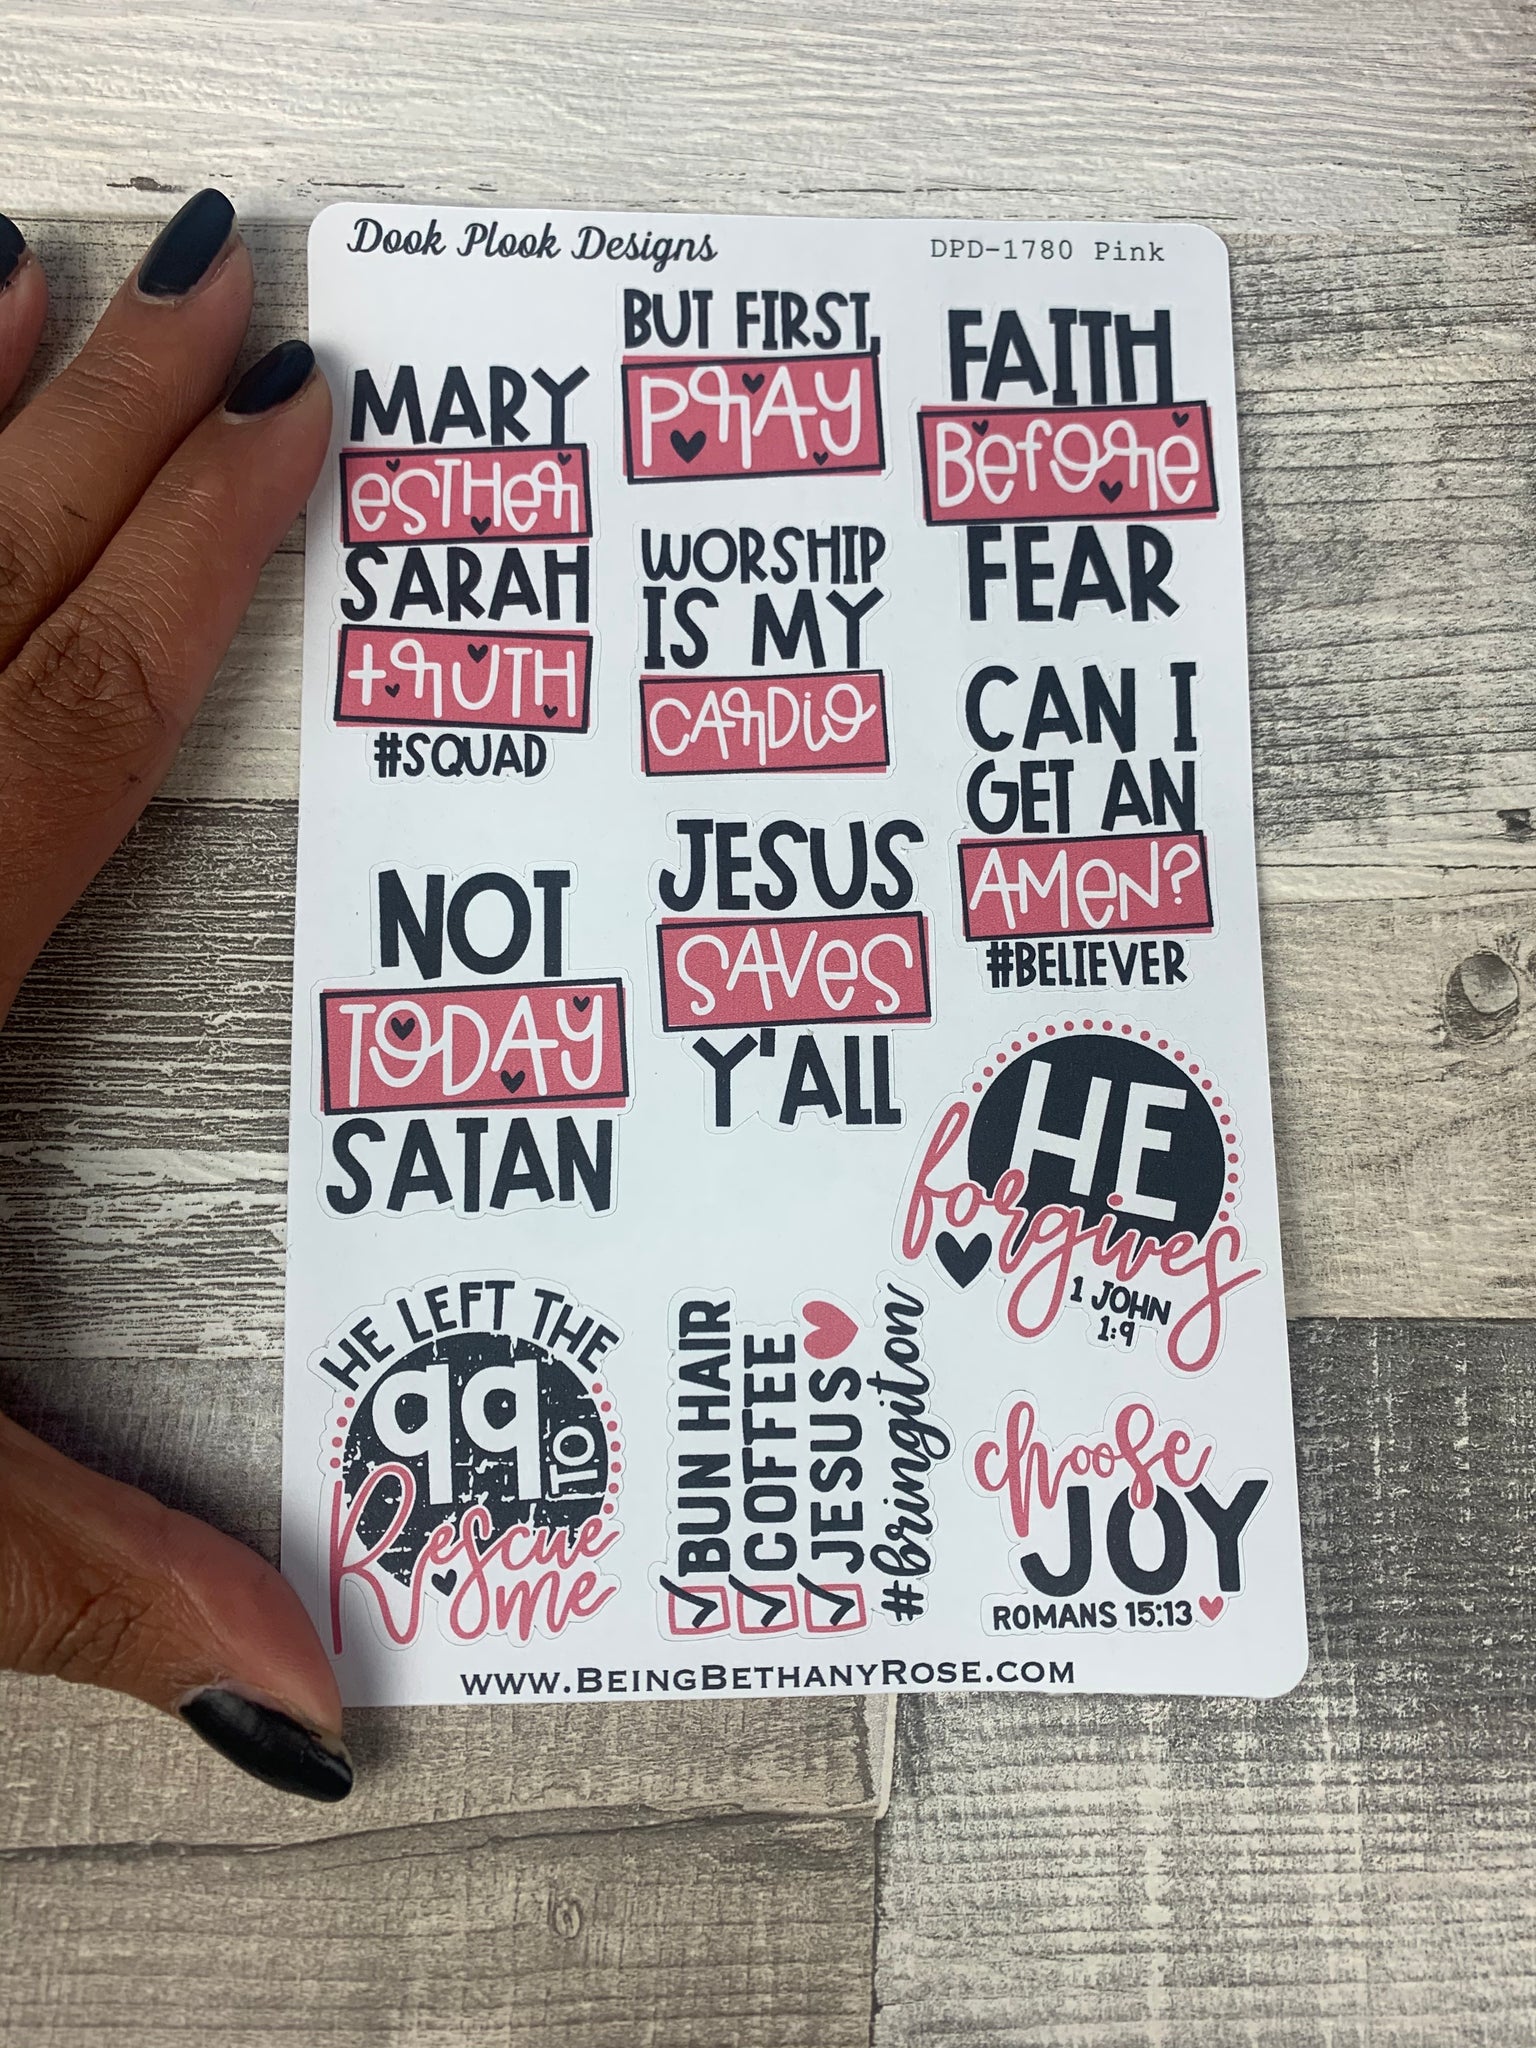 Dook Plook Designs
DPD-1780 Pink
MARY
esTHer
SARAH
+ rUTH
#SQUAD
BUT FIRST,
PrAy
FAITH
Before
FEAR
WORSHIP
IS MY
CArDio
CAN I
GET AN
AMeN?
#BELIEVER
NOT
TODAY
SATAN
JESUS
SAVes
Y'ALL
HE
forgives
1 JOHN
1:9
HE LEFT THE
99 TO
Rescue
me
BUN HAIR
COFFEE
JESUS
#bringiton
choose
JOY
ROMANS 15:13
WWW.BEINGBETHANYROSE.COM